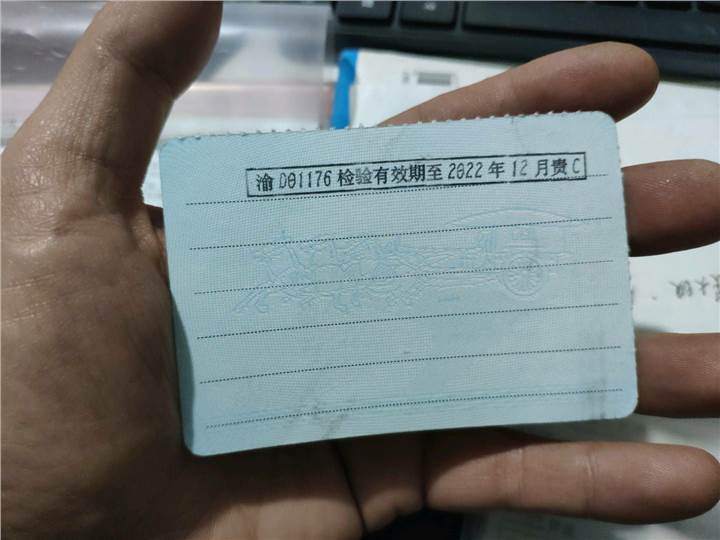 渝D01176检验有效期至2022年12月贵C